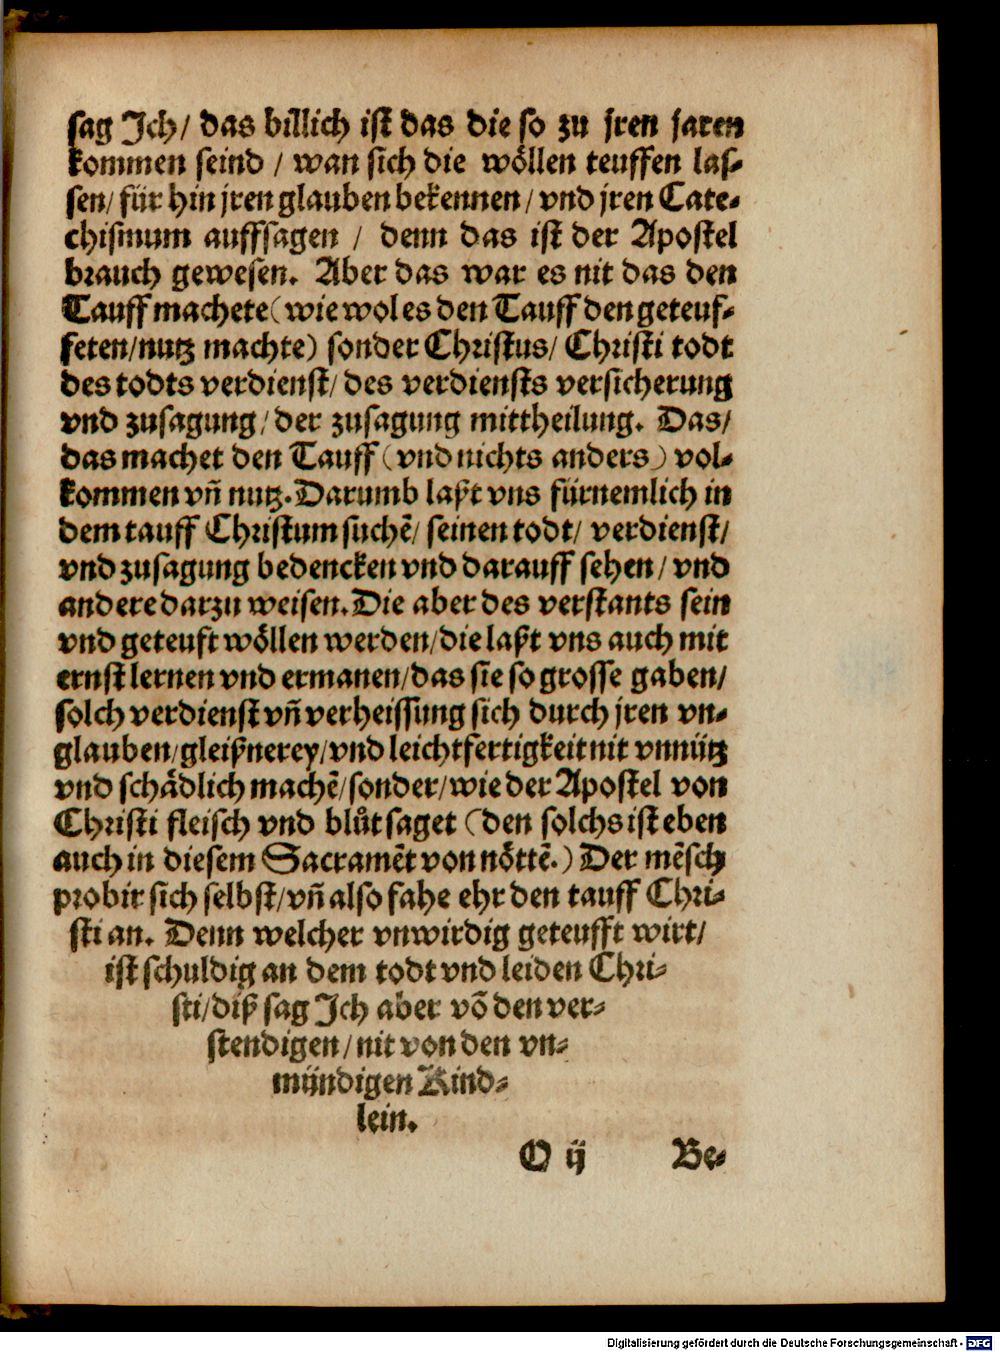 sag Ich/ das billich ist das die so zu jren jaren
kommen seind / wan sich die wöllen teuffen las⸗
sen/ für hin jren glauben bekennen/ vnd jren Cate⸗
chismum auffsagen / denn das ist der Apostel
brauch gewesen. Aber das war es nit das den
Tauff machete (wie wol es den Tauff den geteuf⸗
feten/nutz machte) sonder Christus/ Christi todt
des todts verdienst/ des verdiensts versicherung
vnd zusagung/der zusagung mittheilung. Das/
das machet den Tauff (vnd nichts anders) vol⸗
kommen vñ nutz. Darumb laßt vns fürnemlich in
dem tauff Christum suchẽ/ seinen todt/ verdienst/
vnd zusagung bedencken vnd darauff sehen/ vnd
andere darzu weisen. Die aber des verstants sein
vnd geteuft wöllen werden/die laßt vns auch mit
ernst lernen vnd ermanen/das sie so grosse gaben/
solch verdienst vñ verheissung sich durch jren vn⸗
glauben/gleißnerey/vnd leichtfertigkeit nit vnnütz
vnd schädlich machẽ/sonder/wie der Apostel von
Christi fleisch vnd blůt saget (den solchs ist eben
auch in diesem Sacramẽt von nöttẽ.) Der mẽsch
probir sich selbst/vñ also fahe ehr den tauff Chri⸗
sti an. Denn welcher vnwirdig geteufft wirt/
ist schuldig an dem todt vnd leiden Chri⸗
sti/diß sag Ich aber võ den ver⸗
stendigen/nit von den vn⸗
mündigen Kind⸗
lein.
O ij Be⸗
Digitalisierung gefördert durch die Deutsche Forschungsgemeinschaft - DFG